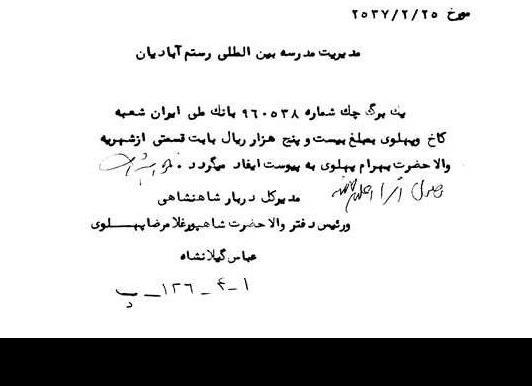 مورخ ۲۵۳۷/۲/۲۵
مدیریت مدرسه بین المللی رستم آبادیان
یک برگ چک شماره ۹۶۰۵۳۸ بانک ملی ایران شعبه
کاخ وپهلوی بمبلغ بیست و پنج هزار ریال بابت قسمتی ازشهریه
والا حضرت بهرام پهلوی به پیوست ایفاد میگردد . خواهشمند است
وصول آنرا اعلام
مدیرکل دربار شاهنشاهی
ورئیس دفتر والا حضرت شاهپورغلامرضاپهلوی
عباس گیلانشاه
۱ـ۴ـ۱۲۶ـپ